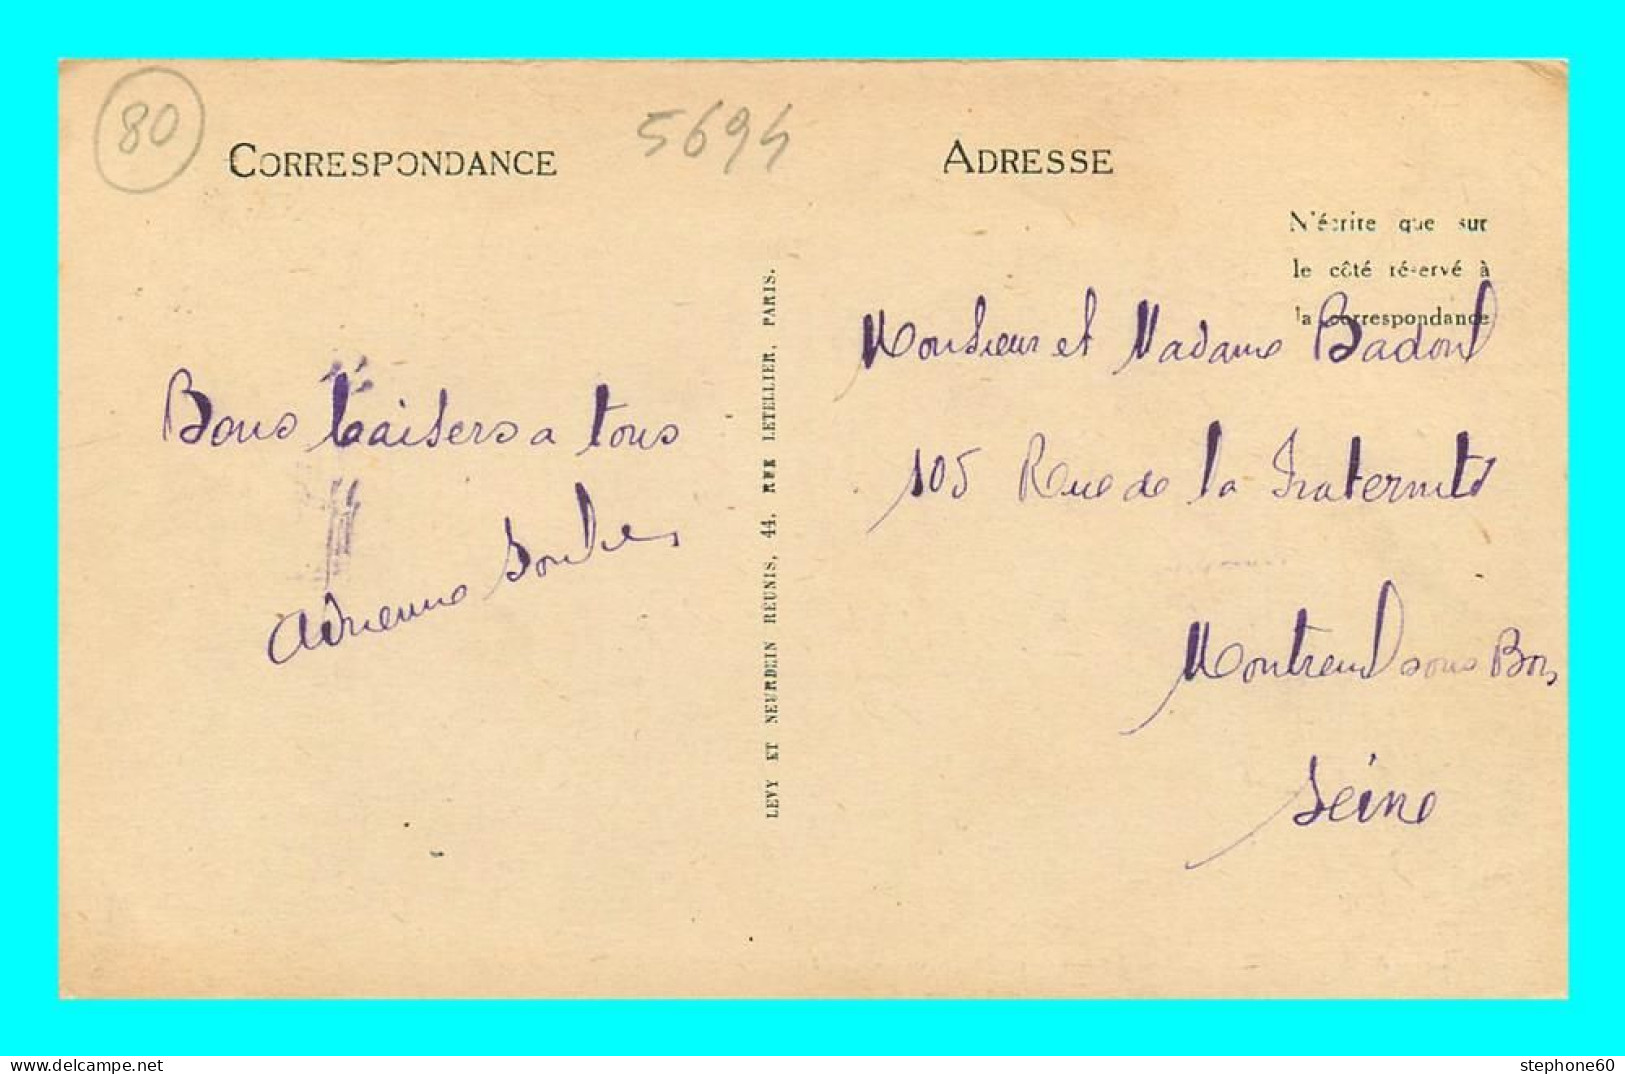 80
5694
CORRESPONDANCE
ADRESSE
N'écrire que sur
le côté réservé à
la correspondance
Bons baisers a tous
Adrienne
LEVY ET NEURDEIN REUNIS, 44, RUE LETELLIER, PARIS.
Monsieur et Madame
105 Rue de la Fraternité
Montreuil sous Bois
Seine
www.delcampe.net
stephone60